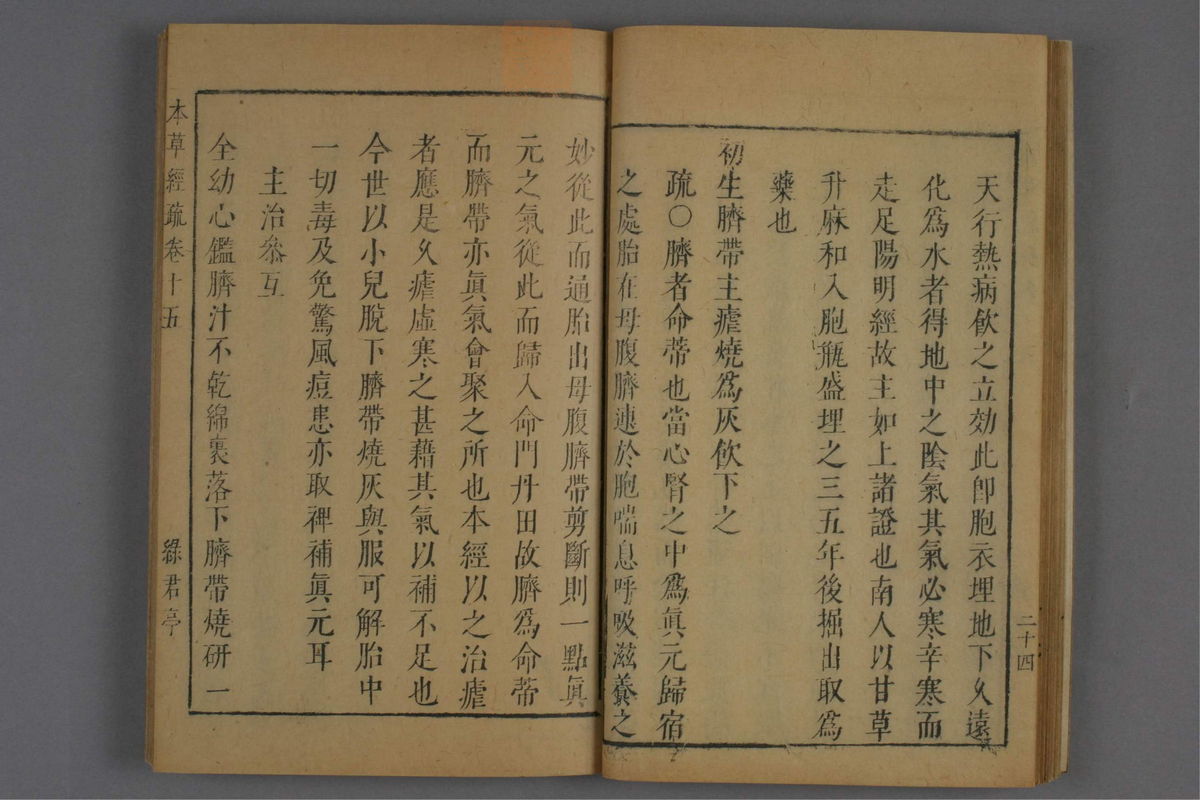 天行熱病飲之立効此卽胞衣埋地下久遠
化爲水者得地中之陰氣其氣必寒辛寒而
走足陽明經故主如上諸證也南人以甘草
升麻和入胞甁盛埋之三五年後掘出取爲
藥也
初生臍帶主瘧燒爲灰飲下之
疏〇臍者命蒂也當心腎之中爲眞元歸宿
之處胎在母腹臍連於胞喘息呼吸滋養之
二十四
妙從此而通胎出母腹臍帶剪斷則一點眞
元之氣從此而歸入命門丹田故臍爲命蒂
而臍帶亦眞氣會聚之所也本經以之治瘧
者應是久瘧虛寒之甚藉其氣以補不足也
今世以小兒脫下臍帶燒灰與服可解胎中
一切毒及免驚風痘患亦取裨補眞元耳
主治叅互
全幼心鑑臍汁不乾綿裹落下臍帶燒研一
本草經疏卷十五
綠君亭